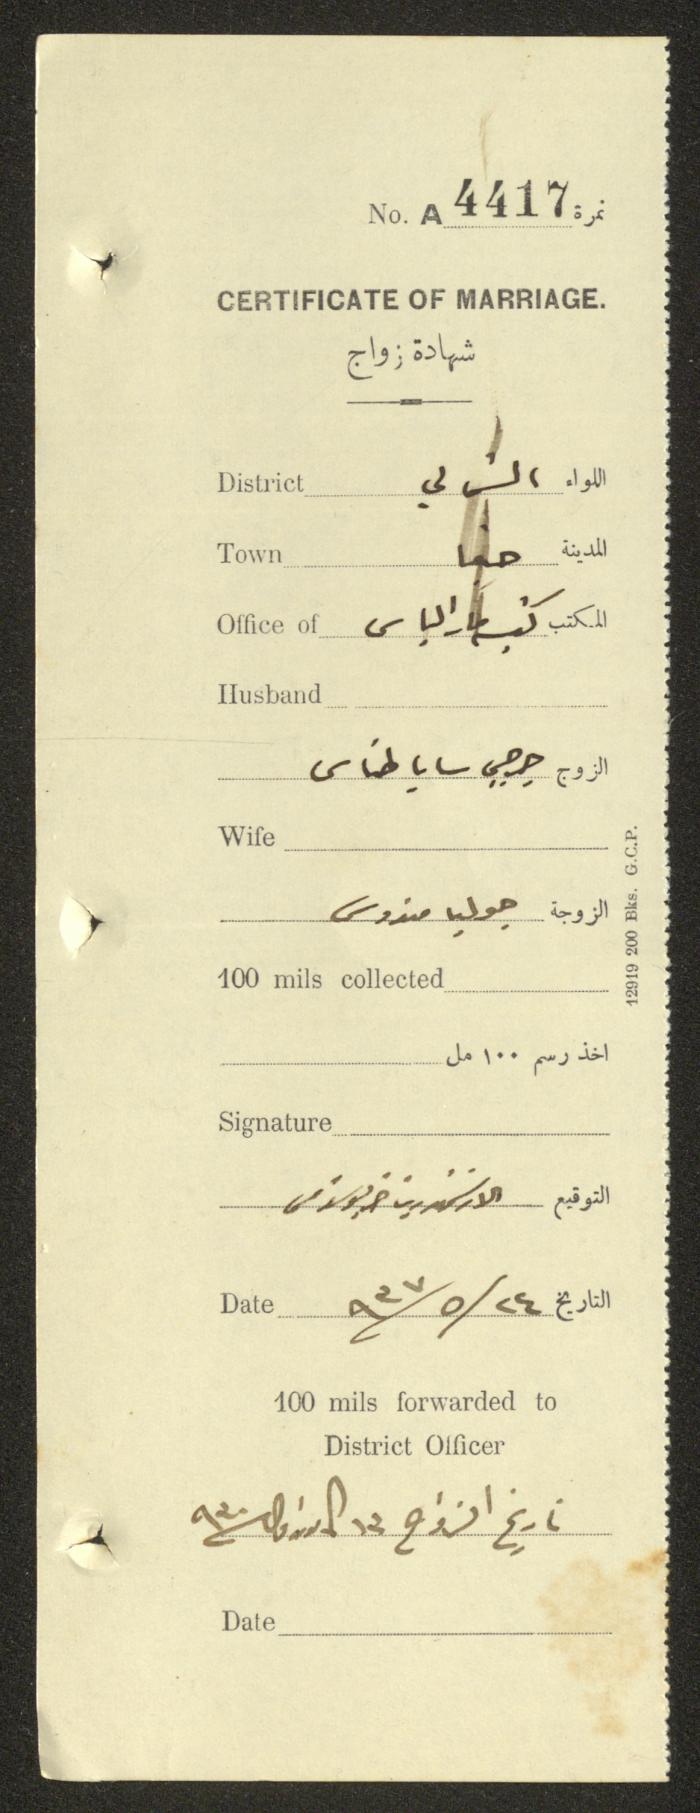 No. A 4417 نمرة
CERTIFICATE OF MARRIAGE.
شهادة زواج
District الشمالي اللواء
Town حيفا المدينة
Office of كنيسة مار الياس المكتب
Husband
الزوج جرجي سابا طناس
Wife
الزوجة جوليا
100 mils collected
اخذ رسم ١٠٠ مل
Signature
التوقيع
Date ٢٤/٥/٩٣٧ التاريخ
100 mils forwarded to
District Officer
تاريخ الزواج ١٣
Date
12919 200 Bks. G.C.P.